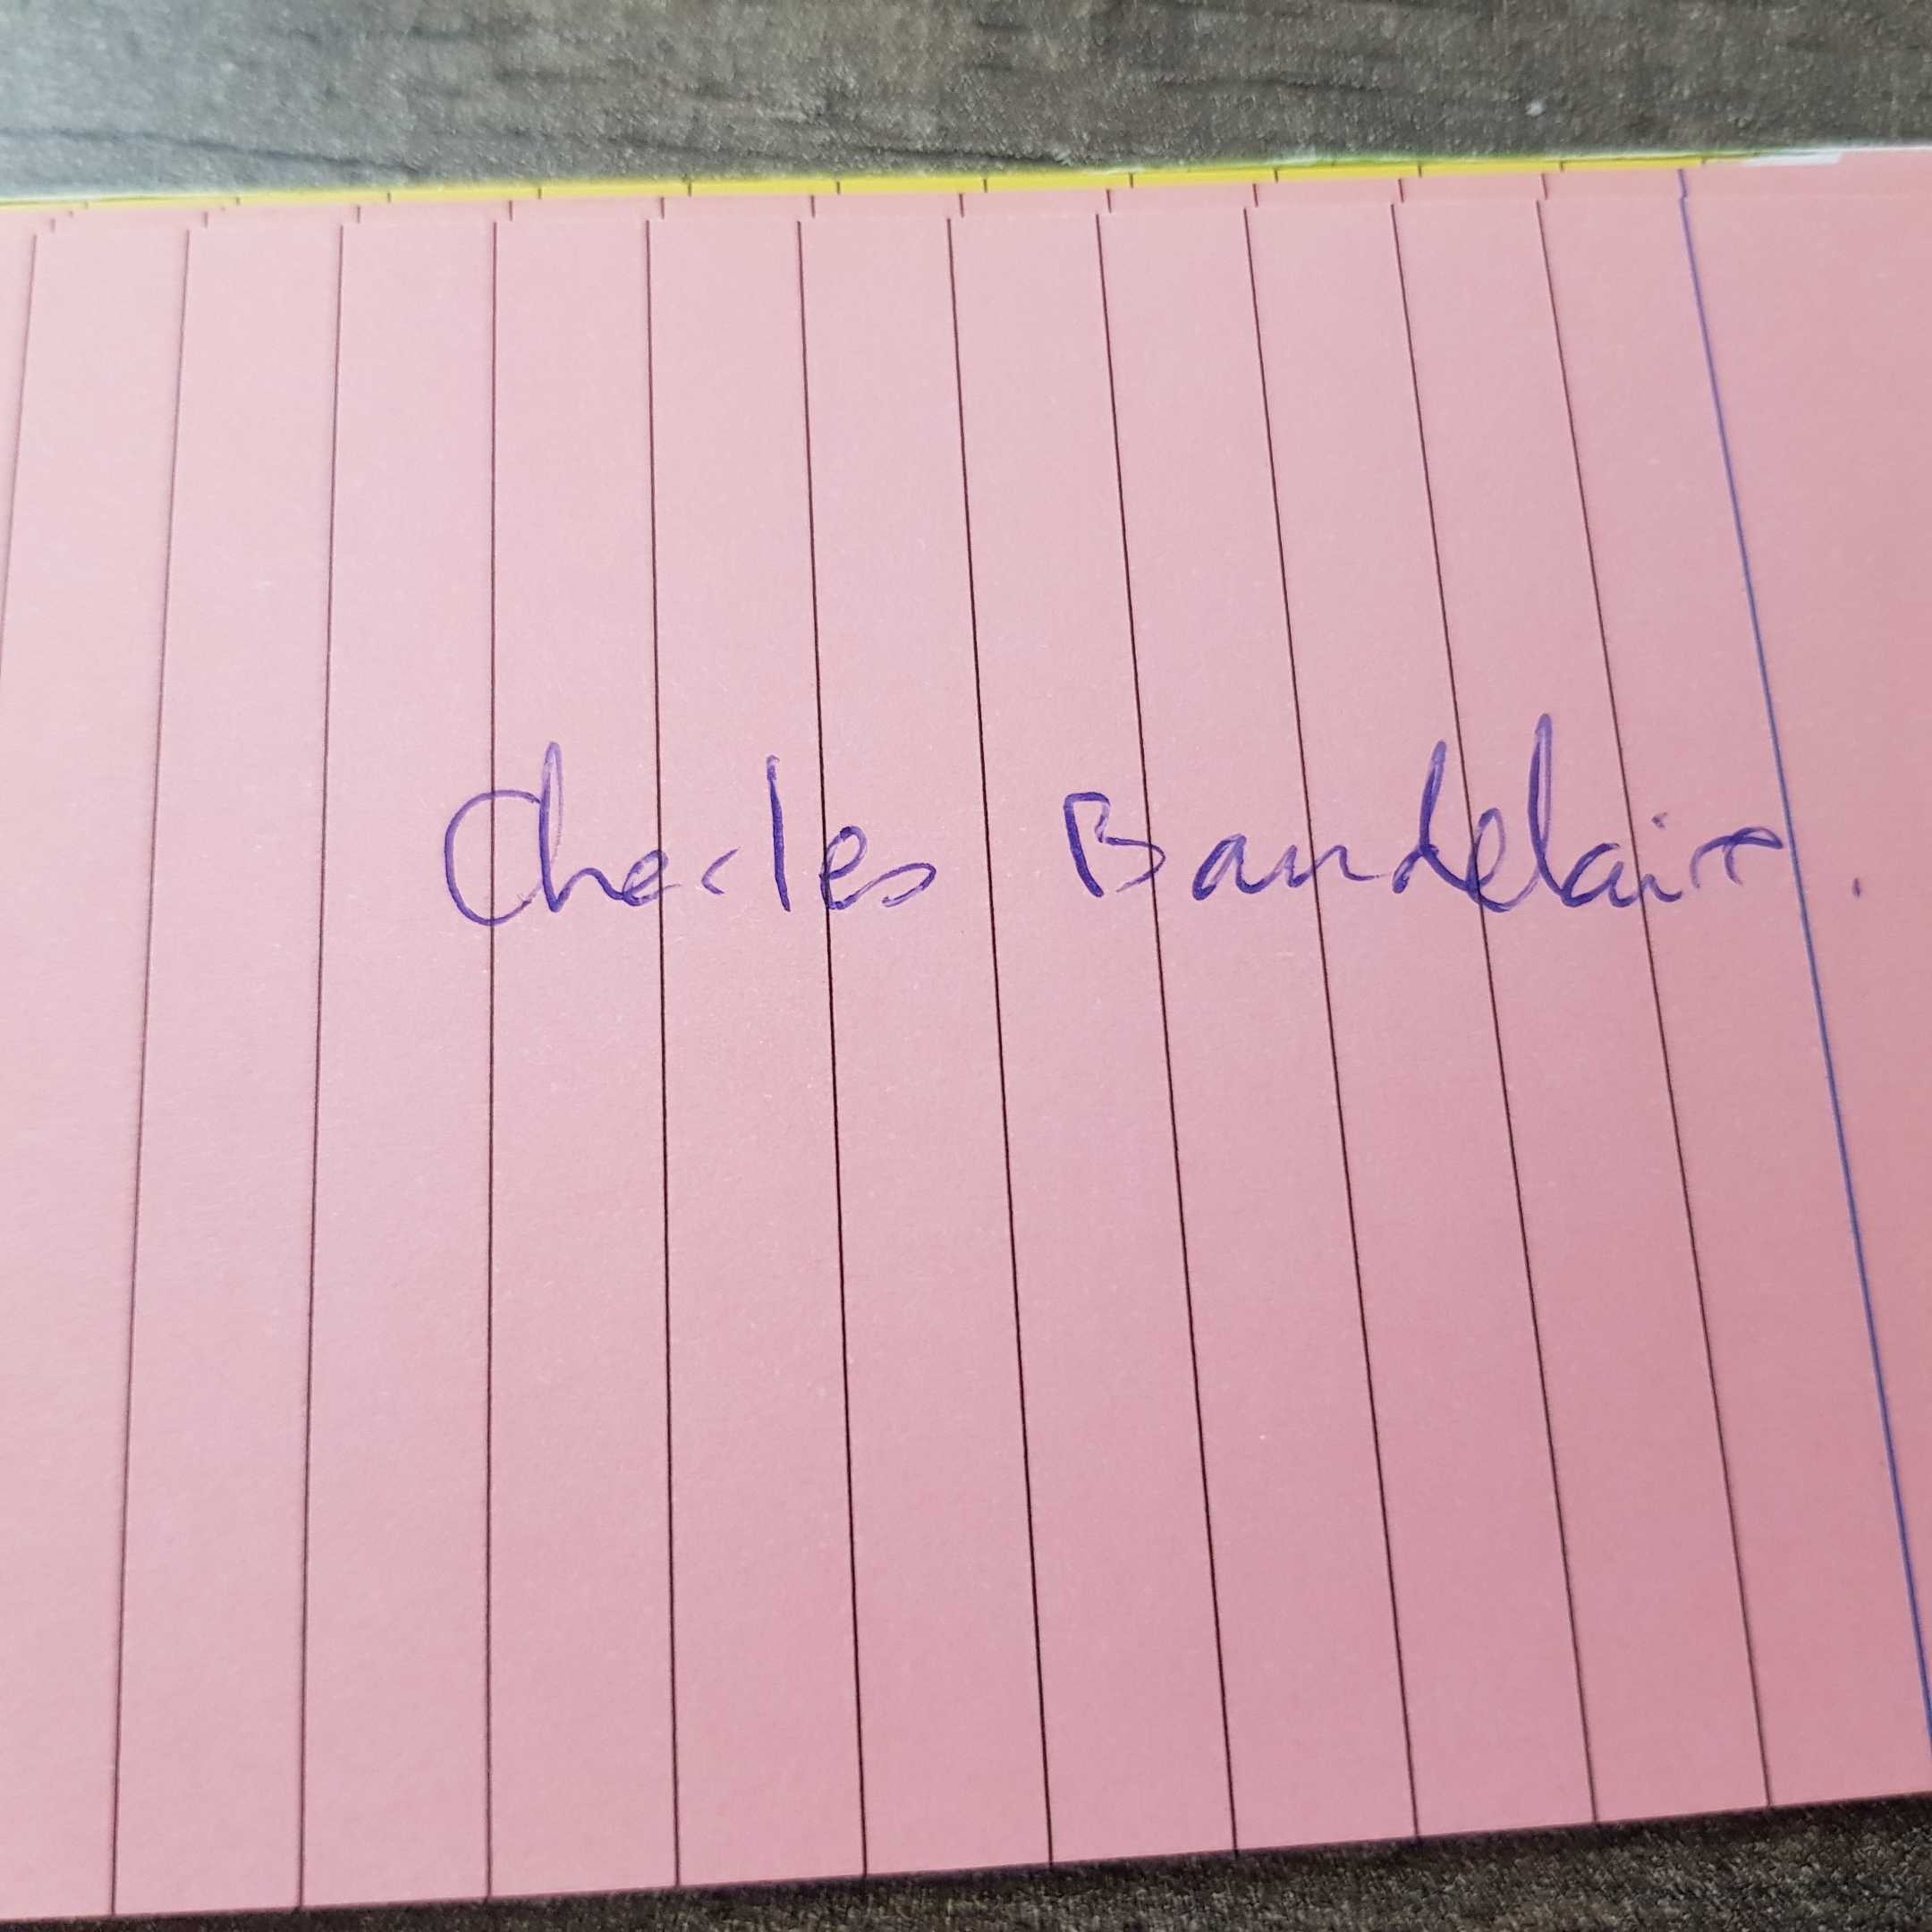 Charles Baudelaire.